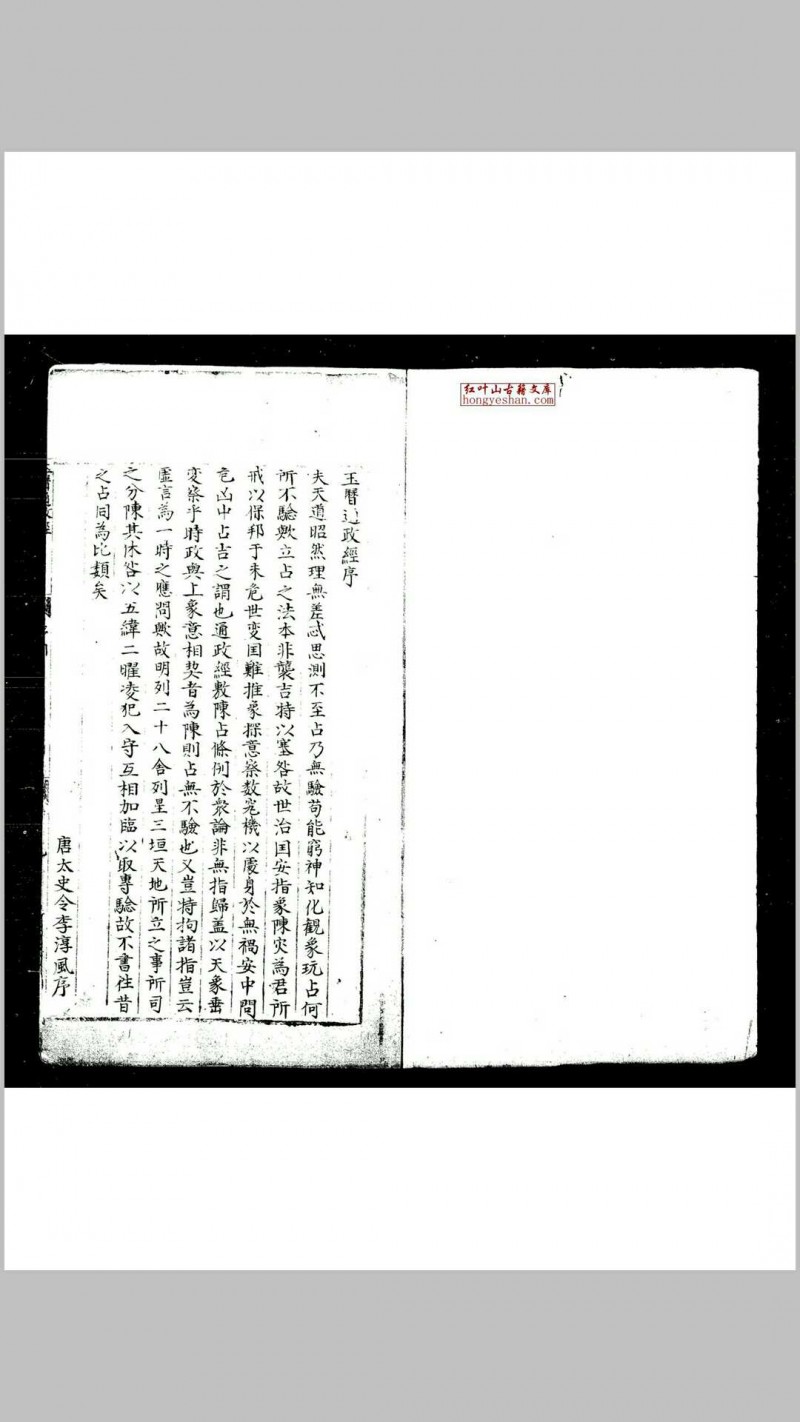 红叶山古籍文库
hongyeshan.com
玉曆通政經序
夫天道昭然理無差忒思測不至占乃無驗苟能窮神知化觀象玩占何
所不驗歟立占之法本非襲吉持以塞咎故世治囯安指象陳灾為君所
戒以保邦于未危世变囯難推象探意察数究機以處身於無禍安中問
危凶中占吉之謂也通政經敷陳占條例於衆論非無指歸盖以天象垂
变察乎時政與上象意相契者為陳則占無不驗也又豈持拘諸指豈云
虛言為一時之應問歟故明列二十八舍列星三垣天地所立之事所司
之分陳其休咎以五緯二曜凌犯入守互相加臨以取專驗故不書往昔
之占同為比類矣
唐太史令李淳風序